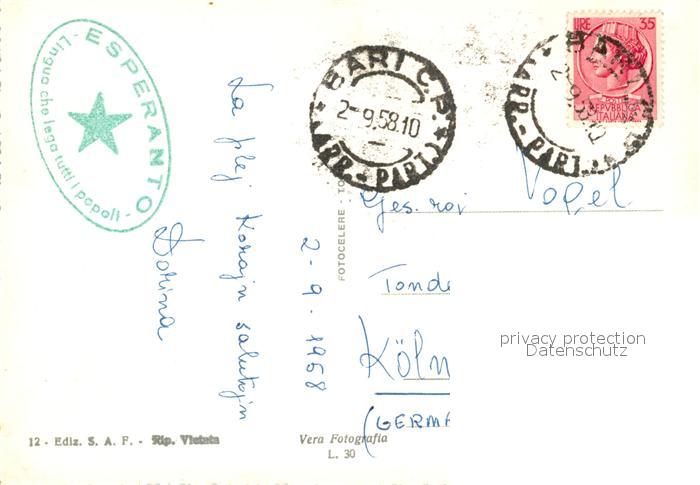 ESPERANTO
- Lingua che lega tutti i popoli -
La plej korajn salutojn
Dorina
2-9-1958
BARI C.P.
2-9.58.10
ARR.-PART.
LIRE 35
POSTE
REPVBBLICA
ITALIANA
BARI
2-9.58.10
ARR.-PART.
Ges. roj Vogel
Tond
Köln
(GERMA
FOTOCELERE - TO
12 - Ediz. S. A. F. - Rip. Vietata
Vera Fotografia
L. 30
privacy protection
Datenschutz